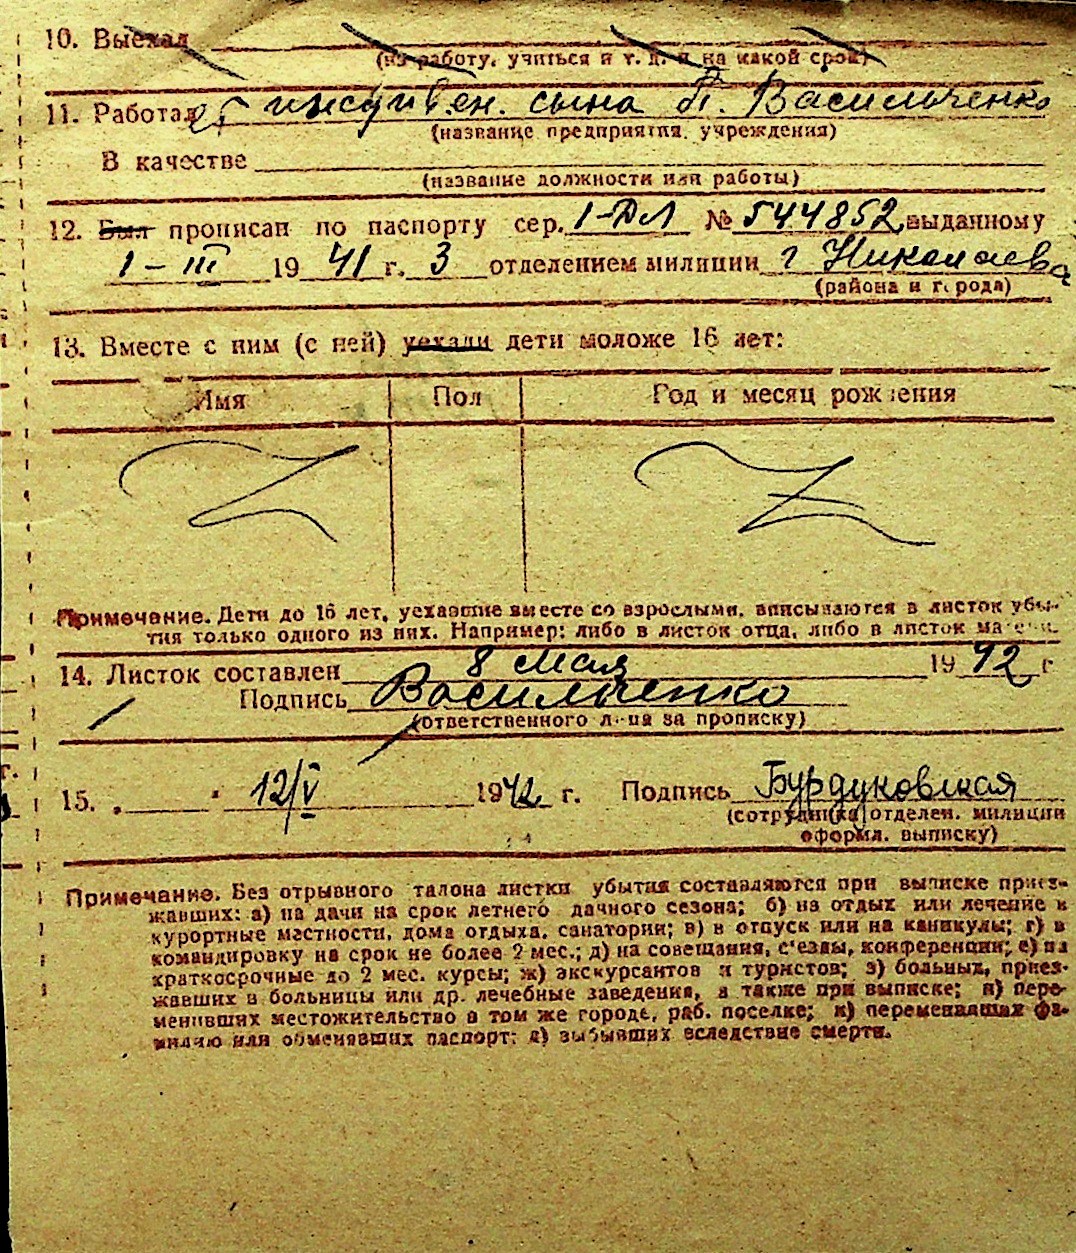 10. Выехал
(на работу, учиться и т. д. и на какой срок)
11. Работает иждивен. сына П. Васильченко
(название предприятия, учреждения)
В качестве
(название должности или работы)
12. Был прописан по паспорту сер. 1-ДЛ № 544852, выданному
1 - III 1941 г. 3 отделением милиции г Николаева
(района и города)
13. Вместе с ним (с ней) уехали дети моложе 16 лет:
Имя Пол Год и месяц рождения
Z Z
Примечание. Дети до 16 лет, уехавшие вместе со взрослыми, вписываются в листок убы-
тия только одного из них. Например: либо в листок отца, либо в листок матери.
14. Листок составлен 8 мая 1942 г
Подпись Васильченко
(ответственного лица за прописку)
15. „ " 12/V 1942 г. Подпись Бурдуковская
(сотрудника отделен. милиции
оформл. выписку)
Примечание. Без отрывного талона листки убытия составляются при выписке приез-
жавших: а) на дачи на срок летнего дачного сезона; б) на отдых или лечение в
курортные местности, дома отдыха, санатории; в) в отпуск или на каникулы; г) в
командировку на срок не более 2 мес.; д) на совещания, с'езды, конференции; е) на
краткосрочные до 2 мес. курсы; ж) экскурсантов и туристов; з) больных, приез-
жавших в больницы или др. лечебные заведения, а также при выписке; и) пере-
менивших местожительство в том же городе, раб. поселке; к) переменивших фа-
милию или обменявших паспорт; л) выбывших вследствие смерти.